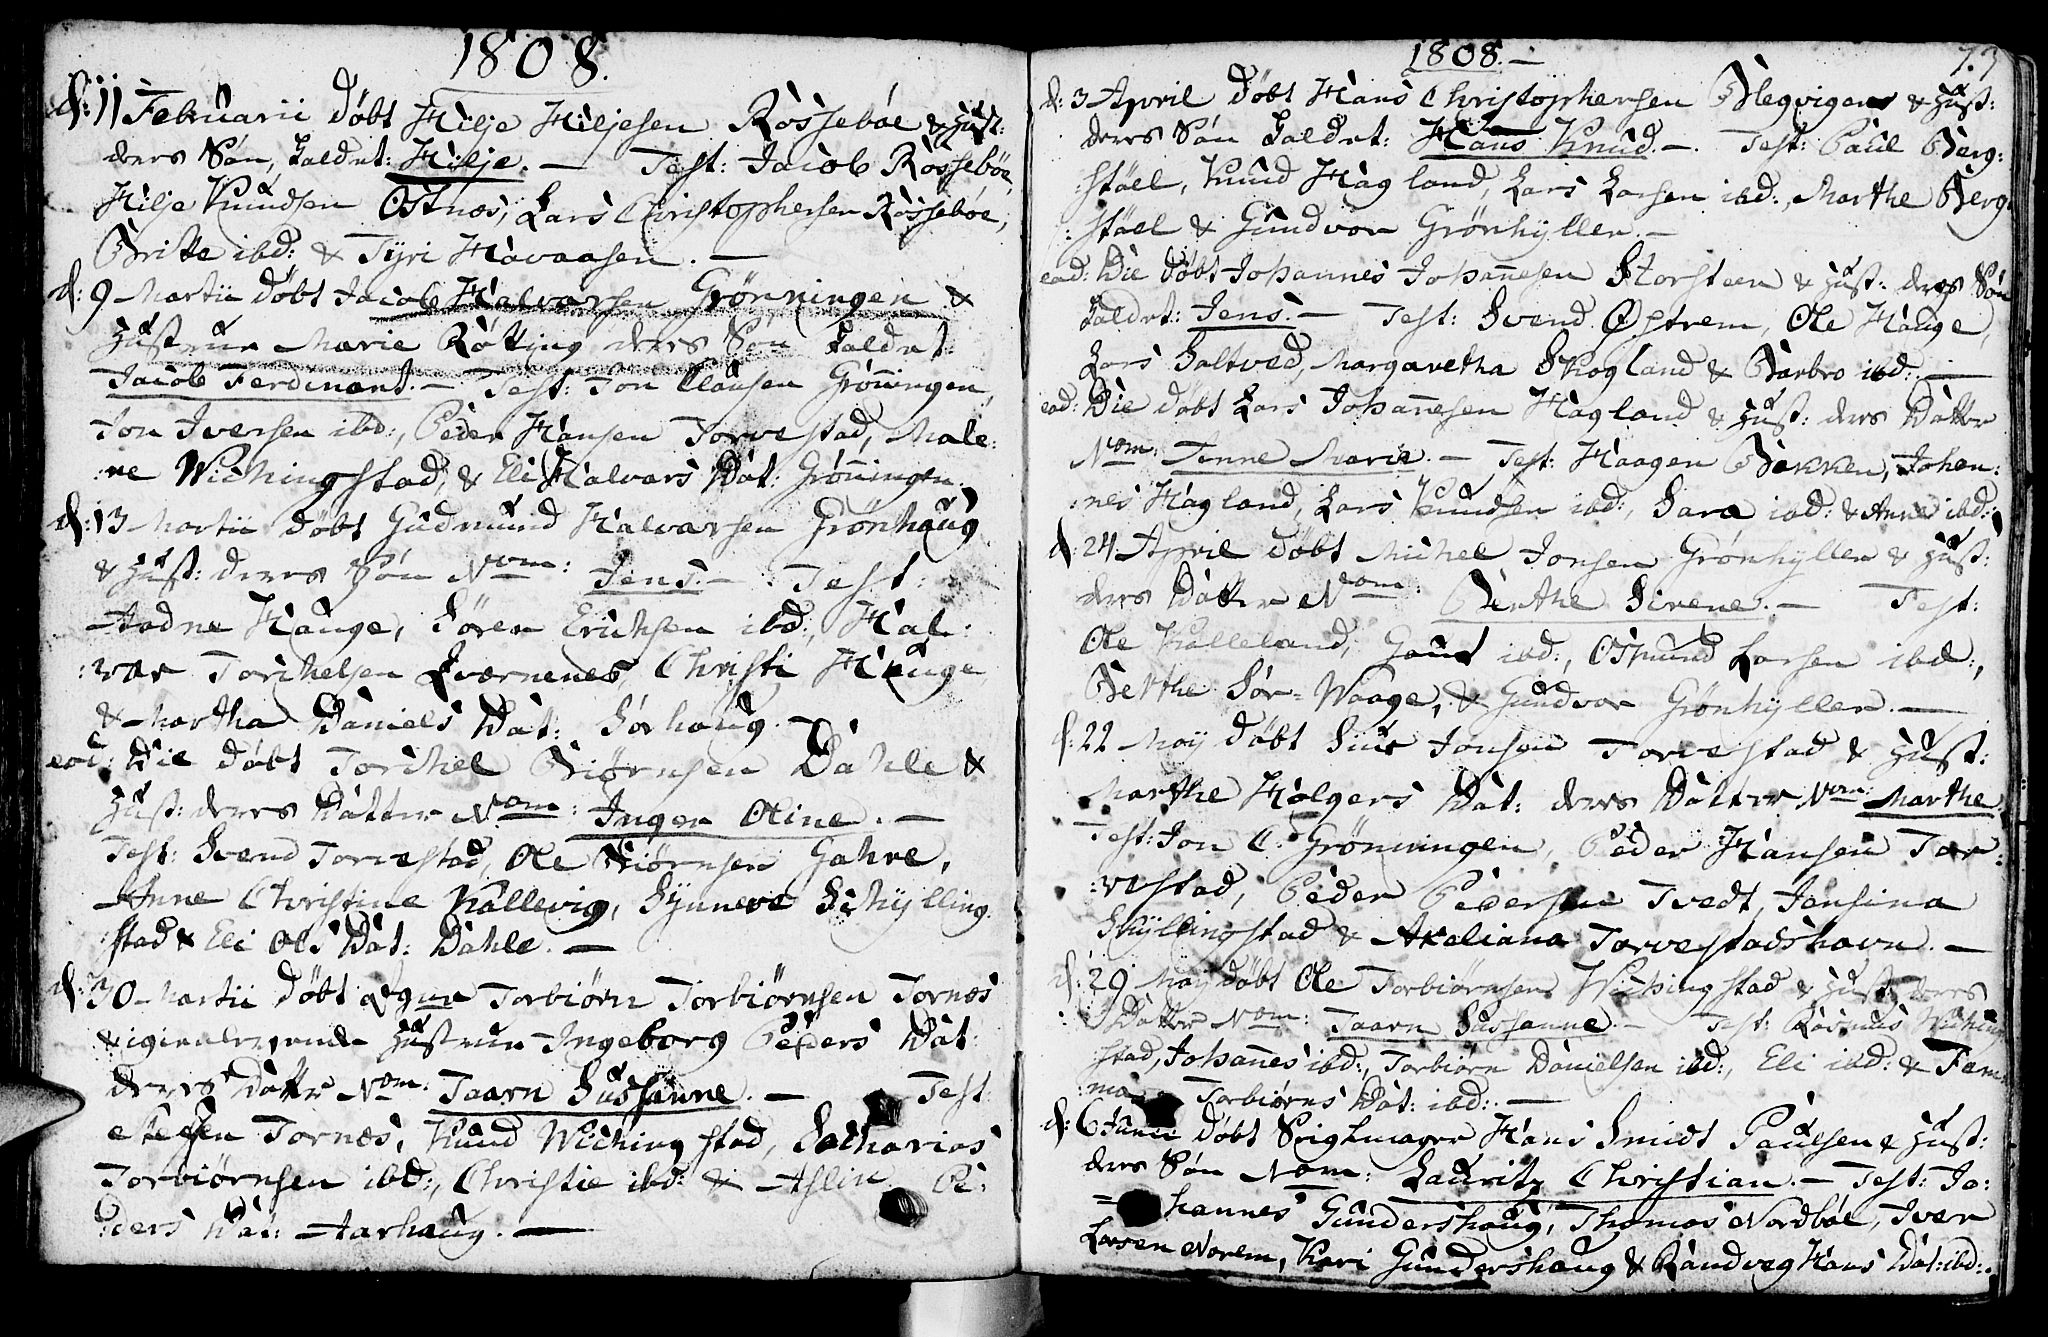 1808.
d: 11 Februarii døbt Hilje Hiljesen Røssebøe & Hust:
deres Søn, kaldet: Hilje. — Test: Jacob Røssebøe,
Hilje Knudsen Ostnæs, Lars Christophersen Røssebøe,
Britte ibd: & Tyri Havaasen. —
d: 9 Martii døbt Jacob Halvorsen Grønningen &
Hustrue Marie Røtting deres Søn kaldet
Jacob Ferdinant. — Test: Jon Clausen Grøningen,
Jon Iversen ibd:, Peder Hansen Torvestad, Male:
:ne Wichingstad, & Eli Halvors Dat: Grøningen.
d: 13 Martii døbt Gudmund Halvorsen Grønhaug
& Hust: deres Søn Nom: Jens. — Test:
Aadne Hauge, Sören Erichsen ibd:, Hal:
:vor Torchelsen Qværnenes, Christi Hauge
& Martha Daniels Dat: Sørhaug. —
eod: Die døbt Torchel Biørnsen Dahle &
Hust: deres Datter Nom: Inger Oline. —
Test: Svend Torvestad, Ole Biørnsen Gahre,
Anne Christine Kallevig, Synneve Schylling
:stad & Eli Ols Dat: Dahle. —
d: 30 Martii døbt Torbiørn Torbiørnsen Tornæs
& Hustrue Ingeborg Peders Dat:
deres Datter Nom: Taarn Sussanne. — Test:
Tornæs, Knud Wichingstad, Sacharias
Torbiørnsen ibd:, Christie ibd: & Aslin Pe:
:ders Dat: Aarhaug. —

1808. —
73
d: 3 April døbt Hans Christophersen Blegvigen & Hust:
deres Søn kaldet: Hans Knud. — Test: Paul Berg:
:støel, Knud Hagland, Lars Larsen ibd:, Marthe Berg:
:støel & Gundvor Grønhyllen. —
eod: Die døbt Johannes Johannesen Storsteen & Hust: deres Søn
kaldet: Jens. — Test: Svend Østrem, Ole Hauge,
Lars Saltved, Margaretha Skogland & Barbro ibd: —
eod: Die døbt Lars Johannesen Hagland & Hust: deres Datter
Nom: Tenne Marie. — Test: Haagen Bekken, Johan:
:nes Hagland, Lars Knudsen ibd:, Sara ibd: & Anne ibd:
d: 24 April døbt Michel Jonsen Grønhyllen & Hust:
deres Datter Nom: Berthe Sirene. — Test:
Ole Kalleland, Gaut ibd:, Osmund Larsen ibd:,
Berthe Sør-Waage, & Gundvor Grønhyllen. —
d: 22 Maÿ døbt Siur Jonsen Torvestad & Hust:
Marthe Holgers Dat: deres Datter Nom: Marthe.
Test: Jon C. Grønningen, Peder Hansen Tor:
:vestad, Peder Pedersen Tvedt, Jonsina
Skyllingstad & Axeliana Torvestadshavn. —
d: 29 Maÿ døbt Ole Torbiørnsen Wichingstad & Hust: deres
Datter Nom: Taarn Sussanne. — Test: Rasmus Wiching
stad, Johannes ibd:, Torbiørn Danielsen ibd:, Eli ibd: & Fem
:ma Torbiørns Dat: ibd: —
d: 6 Junii døbt Hans Smidt Paulsen & Hust:
deres Søn Nom: Lauritz Christian. — Test: Jo:
=hannes Gundershaug, Thomas Nordbøe, Iver
Larsen Norem, Kari Gundershaug & Randveg Hans Dat: ibd: